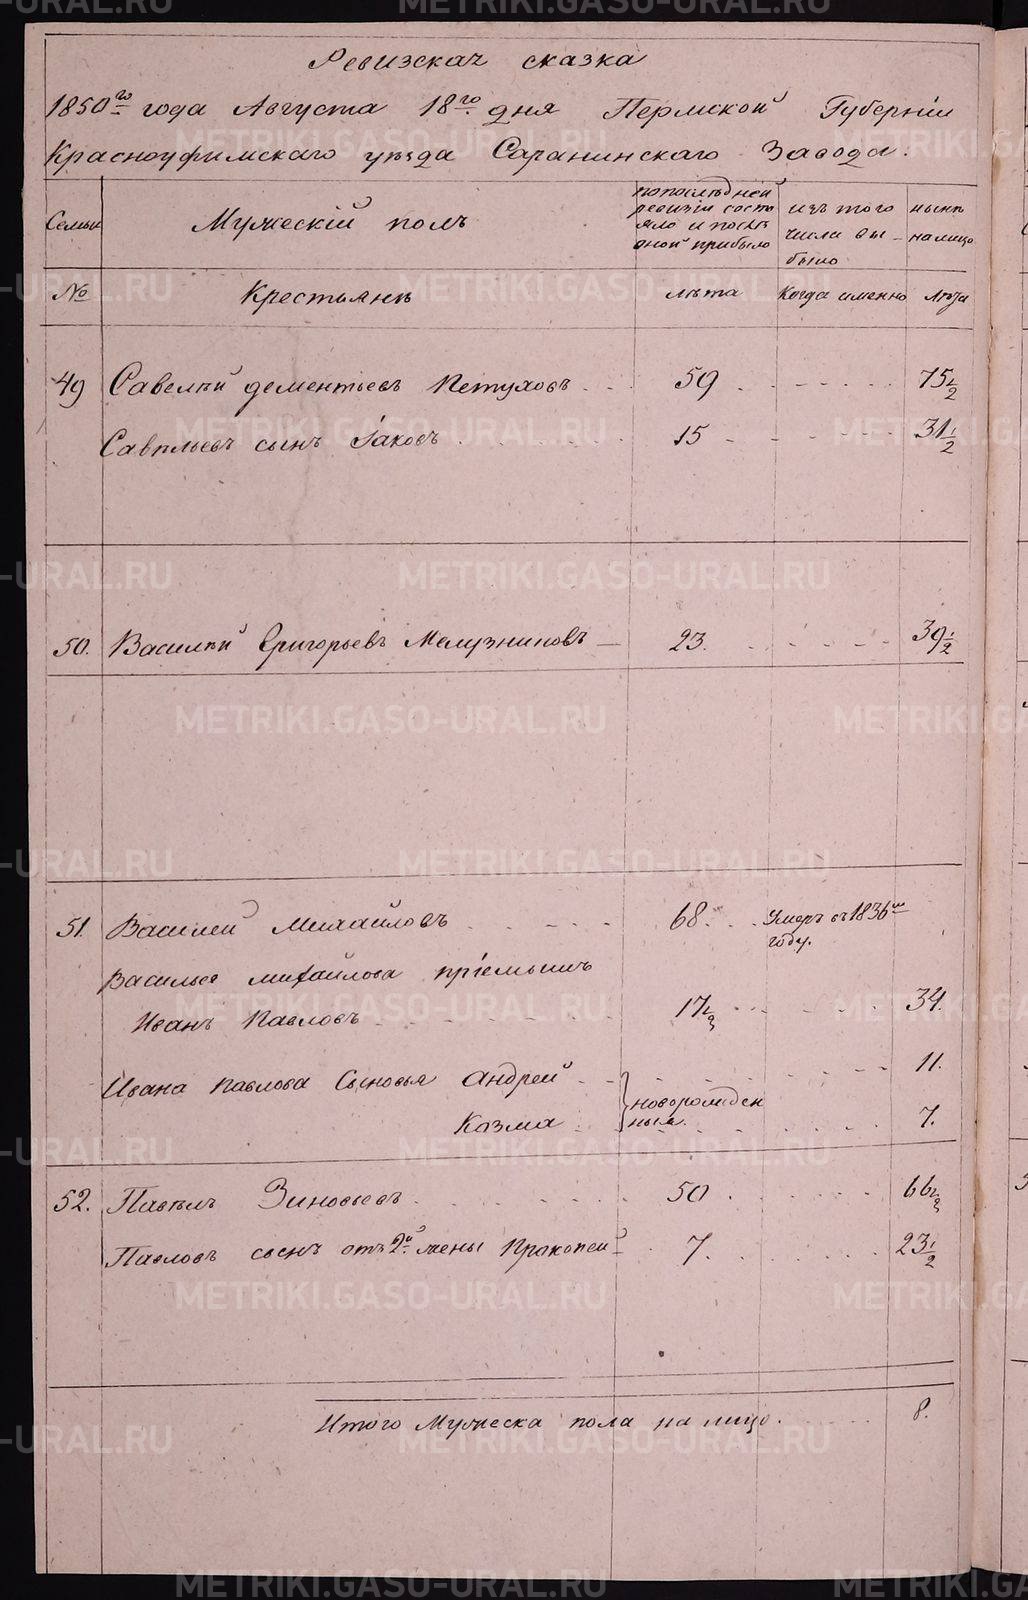 Ревизская сказка
1850го года Августа 18го дня Пермской Губернiи
Красноуфимскаго уѣзда Саранинскаго Завода.
Семьи
Мужескiй полъ
попослѣдней ревизiи состояло и послѣ оной прибыло
изъ того числа выбыло
нынѣ налицо
№
Крестьянѣ
лѣта
Когда именно
лѣта
49 Савелѣй дементьевъ Петуховъ 59 75 1/2
Савѣльевъ сынъ Iаковъ 15 31 1/2
50. Василѣй Григорьевъ Мелузниковъ 23. 39 1/2
51. Василей Михайловъ 68. Умеръ въ 1836м году.
Василья михайлова прiемышъ
Иванъ Павловъ 17 1/2 34.
Ивана Павлова Сыновья Андрей 11.
Козма новорожденныя. 7.
52. Павѣлъ Зиновьевъ 50 66 1/2
Павловъ сынъ отъ 2й жены Прокопей 7. 23 1/2
Итого Мужеска пола на лицо. 8.
METRIKI.GASO-URAL.RU